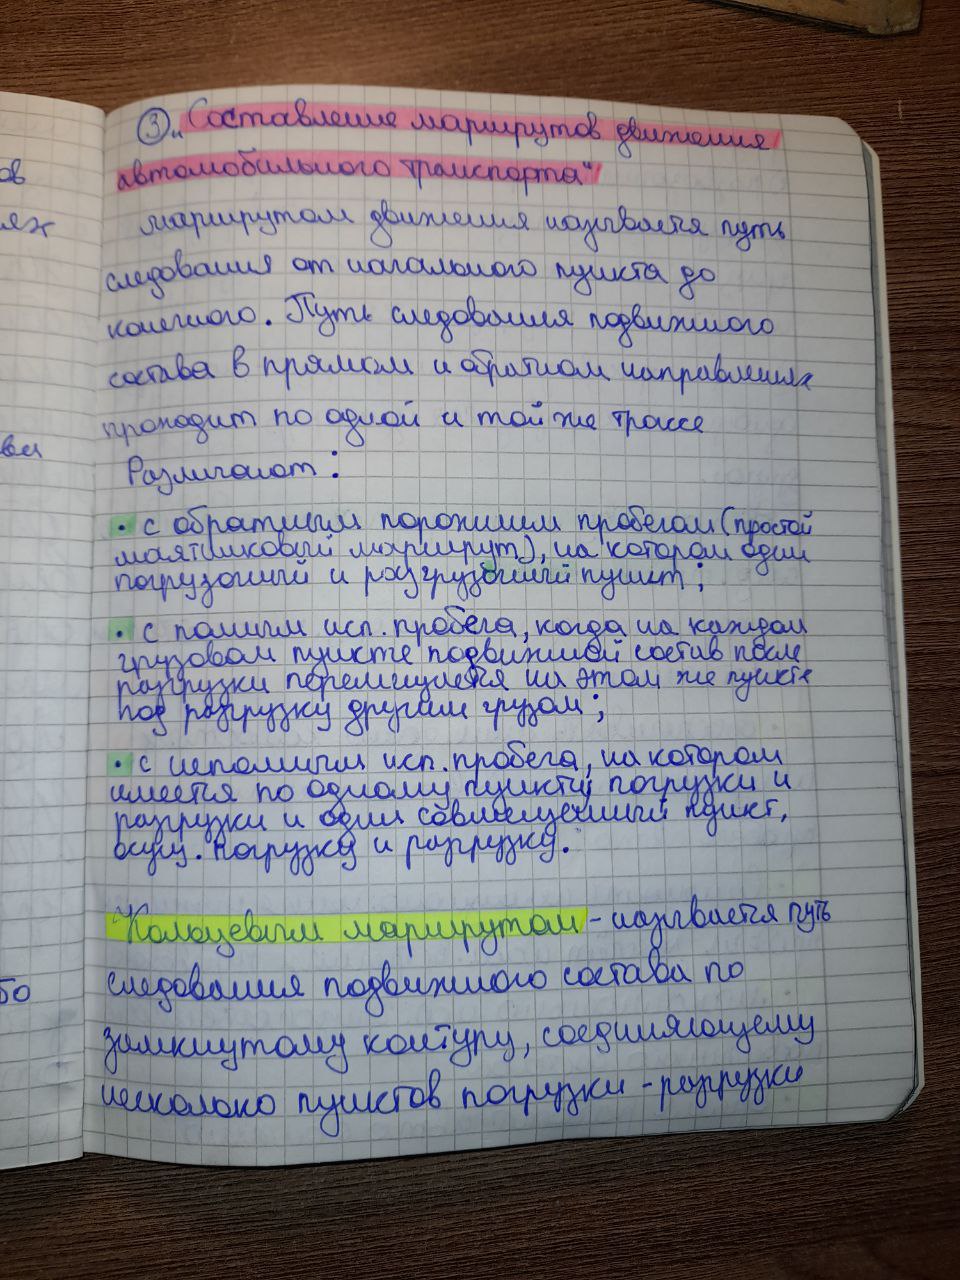 ③ „Составление маршрутов движения
автомобильного транспорта"
маршрутом движения называется путь
следования от начального пункта до
конечного. Путь следования подвижного
состава в прямом и обратном направлениях
проходит по одной и той же трассе
Различают:
• с обратным порожним пробегом (простой
маятниковый маршрут), на котором один
погрузочный и разгрузочный пункт;
• с полным исп. пробега, когда на каждом
грузовом пункте подвижной состав после
разгрузки перемещается на этом же пункте
под разгрузку другим грузом;
• с неполным исп. пробега, на котором
имеется по одному пункту погрузки и
разгрузки и один совмещенный пункт,
осущ. погрузку и разгрузку.
"Кольцевым маршрутом - называется путь
следования подвижного состава по
замкнутому контуру, соединяющему
несколько пунктов погрузки - разгрузки
ов
вки
бо